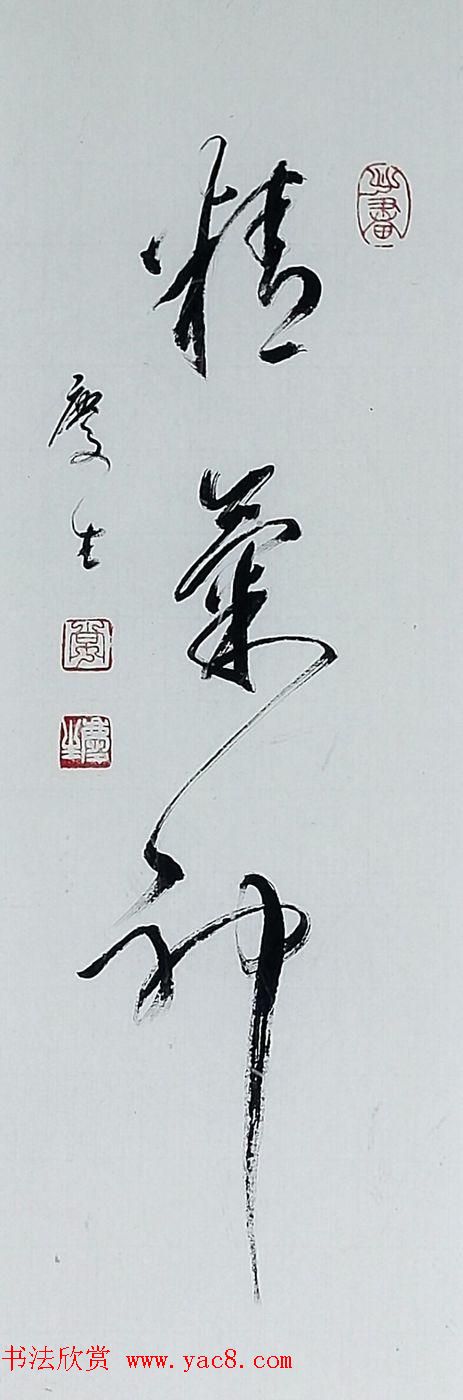 精氣神
慶生
书法欣赏 www.yac8.com